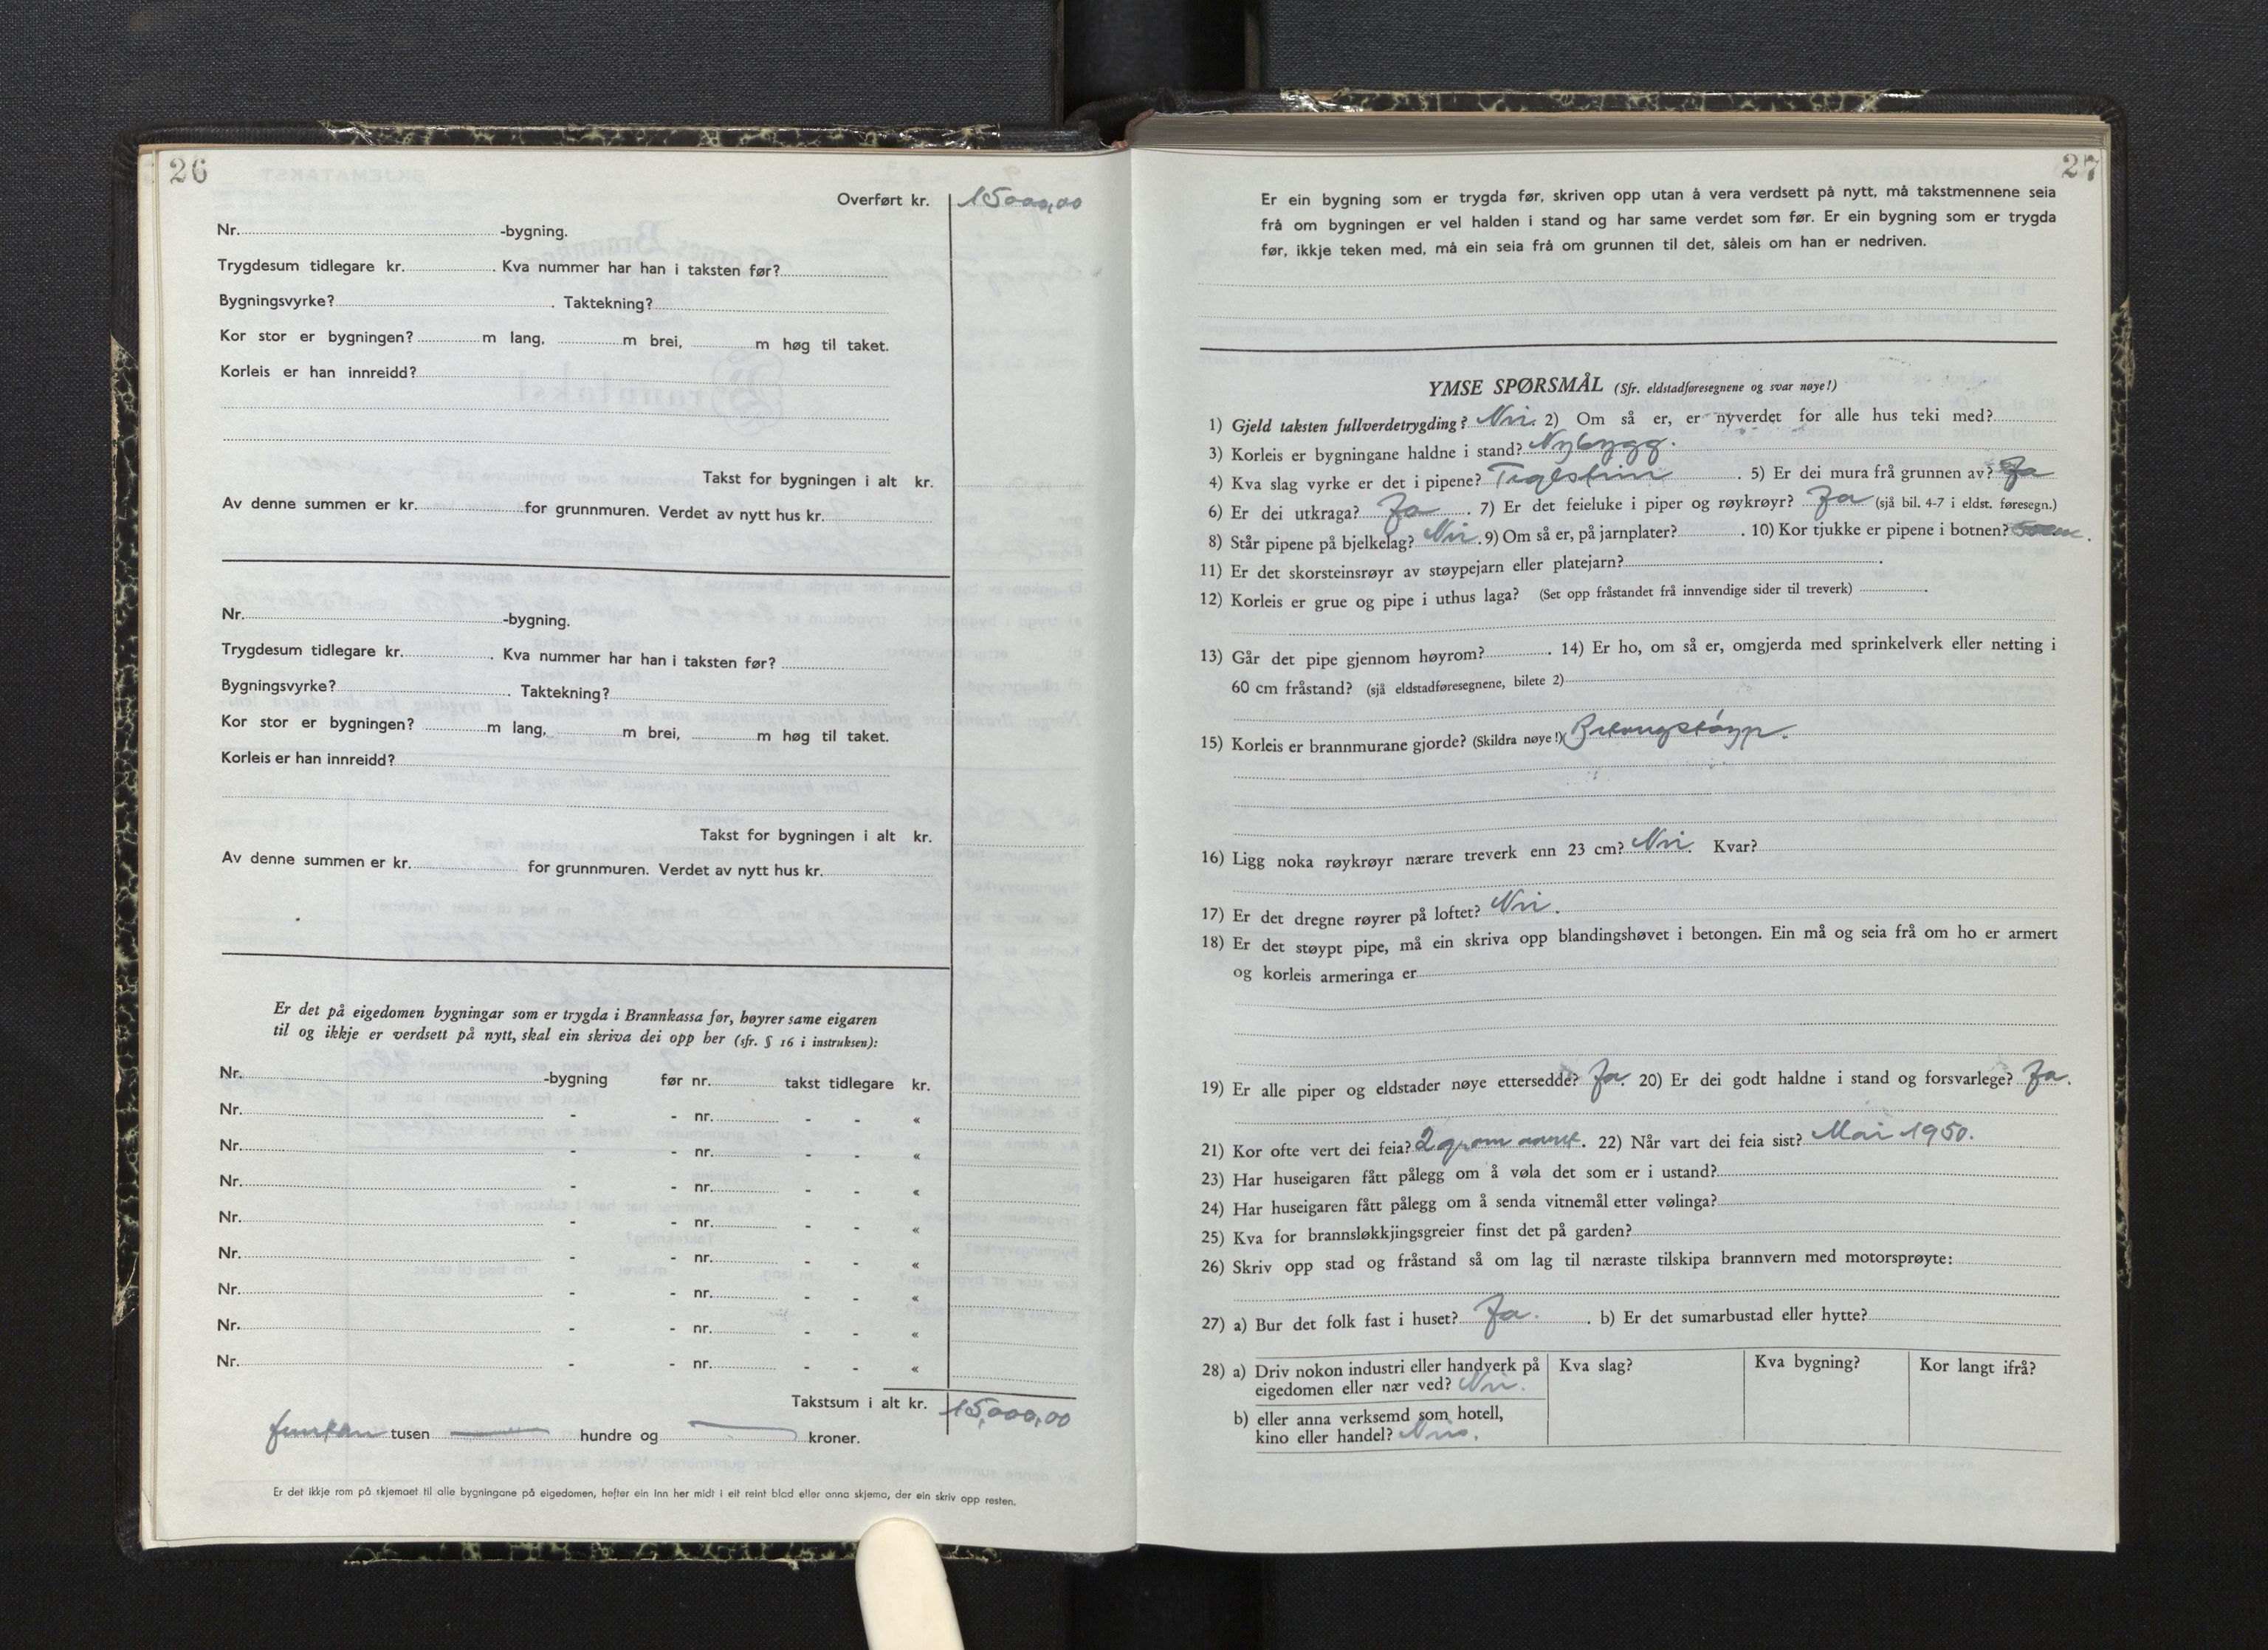 26
Overført kr. 15000,00
Nr. -bygning.
Trygdesum tidlegare kr. . Kva nummer har han i taksten før?
Bygningsvyrke? . Taktekning?
Kor stor er bygningen? m lang, m brei, m høg til taket.
Korleis er han innreidd?
Takst for bygningen i alt kr.
Av denne summen er kr. for grunnmuren. Verdet av nytt hus kr.
Nr. -bygning.
Trygdesum tidlegare kr. . Kva nummer har han i taksten før?
Bygningsvyrke? . Taktekning?
Kor stor er bygningen? m lang, m brei, m høg til taket.
Korleis er han innreidd?
Takst for bygningen i alt kr.
Av denne summen er kr. for grunnmuren. Verdet av nytt hus kr.
Er det på eigedomen bygningar som er trygda i Brannkassa før, høyrer same eigaren
til og ikkje er verdsett på nytt, skal ein skriva dei opp her (sfr. § 16 i instruksen):
Nr. -bygning før nr. takst tidlegare kr.
Nr. - - nr. - - «
Nr. - - nr. - - «
Nr. - - nr. - - «
Nr. - - nr. - - «
Nr. - - nr. - - «
Nr. - - nr. - - «
Nr. - - nr. - - «
Nr. - - nr. - - «
Takstsum i alt kr. 15,000,00
femten tusen hundre og kroner.
Er det ikkje rom på skjemaet til alle bygningane på eigedomen, hefter ein inn her midt i eit reint blad eller anna skjema, der ein skriv opp resten.
27
Er ein bygning som er trygda før, skriven opp utan å vera verdsett på nytt, må takstmennene seia
frå om bygningen er vel halden i stand og har same verdet som før. Er ein bygning som er trygda
før, ikkje teken med, må ein seia frå om grunnen til det, såleis om han er nedriven.
YMSE SPØRSMÅL (Sfr. eldstadføresegnene og svar nøye!)
1) Gjeld taksten fullverdetrygding? Nei. 2) Om så er, er nyverdet for alle hus teki med?
3) Korleis er bygningane haldne i stand? Nybygg.
4) Kva slag vyrke er det i pipene? Teglstein . 5) Er dei mura frå grunnen av? Ja
6) Er dei utkraga? Ja . 7) Er det feieluke i piper og røykrøyr? Ja (sjå bil. 4-7 i eldst. føresegn.)
8) Står pipene på bjelkelag? Nei. 9) Om så er, på jarnplater? . 10) Kor tjukke er pipene i botnen? .
11) Er det skorsteinsrøyr av støypejarn eller platejarn? .
12) Korleis er grue og pipe i uthus laga? (Set opp fråstandet frå innvendige sider til treverk) .
13) Går det pipe gjennom høyrom? . 14) Er ho, om så er, omgjerda med sprinkelverk eller netting i
60 cm fråstand? (sjå eldstadføresegnene, bilete 2)
15) Korleis er brannmurane gjorde? (Skildra nøye!) Betongstøyp.
16) Ligg noka røykrøyr nærare treverk enn 23 cm? Nei. Kvar?
17) Er det dregne røyrer på loftet? Nei.
18) Er det støypt pipe, må ein skriva opp blandingshøvet i betongen. Ein må og seia frå om ho er armert
og korleis armeringa er
19) Er alle piper og eldstader nøye ettersedde? Ja. 20) Er dei godt haldne i stand og forsvarlege? Ja.
21) Kor ofte vert dei feia? 2 g om aaret. 22) Når vart dei feia sist? Mai 1950.
23) Har huseigaren fått pålegg om å vøla det som er i ustand?
24) Har huseigaren fått pålegg om å senda vitnemål etter vølinga?
25) Kva for brannsløkkjingsgreier finst det på garden?
26) Skriv opp stad og fråstand så om lag til næraste tilskipa brannvern med motorsprøyte:
27) a) Bur det folk fast i huset? Ja. . b) Er det sumarbustad eller hytte?
28) a) Driv nokon industri eller handverk på Kva slag? Kva bygning? Kor langt ifrå?
eigedomen eller nær ved? Nei.
b) eller anna verksemd som hotell,
kino eller handel? Nei.